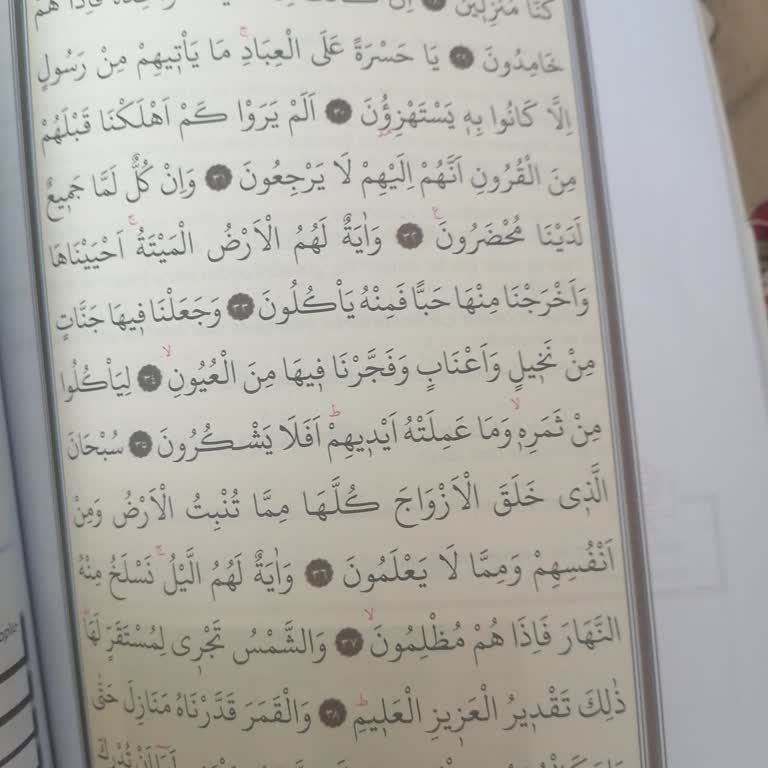 كُنَّا مُنْزِلٖينَ اِنْ فَاِذَا هُمْ
خَامِدُونَ ﴿٢٩﴾ يَا حَسْرَةً عَلَى الْعِبَادِۚ مَا يَأْتٖيهِمْ مِنْ رَسُولٍ
اِلَّا كَانُوا بِهٖ يَسْتَهْزِؤُ۫نَ ﴿٣٠﴾ اَلَمْ يَرَوْا كَمْ اَهْلَكْنَا قَبْلَهُمْ
مِنَ الْقُرُونِ اَنَّهُمْ اِلَيْهِمْ لَا يَرْجِعُونَ ﴿٣١﴾ وَاِنْ كُلٌّ لَمَّا جَمٖيعٌ
لَدَيْنَا مُحْضَرُونَ۟ ﴿٣٢﴾ وَاٰيَةٌ لَهُمُ الْاَرْضُ الْمَيْتَةُۚ اَحْيَيْنَاهَا
وَاَخْرَجْنَا مِنْهَا حَبًّا فَمِنْهُ يَأْكُلُونَ ﴿٣٣﴾ وَجَعَلْنَا فٖيهَا جَنَّاتٍ
مِنْ نَخٖيلٍ وَاَعْنَابٍ وَفَجَّرْنَا فٖيهَا مِنَ الْعُيُونِۙ ﴿٣٤﴾ لِيَأْكُلُوا
مِنْ ثَمَرِهٖۙ وَمَا عَمِلَتْهُ اَيْدٖيهِمْۜ اَفَلَا يَشْكُرُونَ ﴿٣٥﴾ سُبْحَانَ
الَّذٖى خَلَقَ الْاَزْوَاجَ كُلَّهَا مِمَّا تُنْبِتُ الْاَرْضُ وَمِنْ
اَنْفُسِهِمْ وَمِمَّا لَا يَعْلَمُونَ ﴿٣٦﴾ وَاٰيَةٌ لَهُمُ الَّيْلُۚ نَسْلَخُ مِنْهُ
النَّهَارَ فَاِذَا هُمْ مُظْلِمُونَۙ ﴿٣٧﴾ وَالشَّمْسُ تَجْرٖى لِمُسْتَقَرٍّ لَهَاۜ
ذٰلِكَ تَقْدٖيرُ الْعَزٖيزِ الْعَلٖيمِۜ ﴿٣٨﴾ وَالْقَمَرَ قَدَّرْنَاهُ مَنَازِلَ حَتّٰى